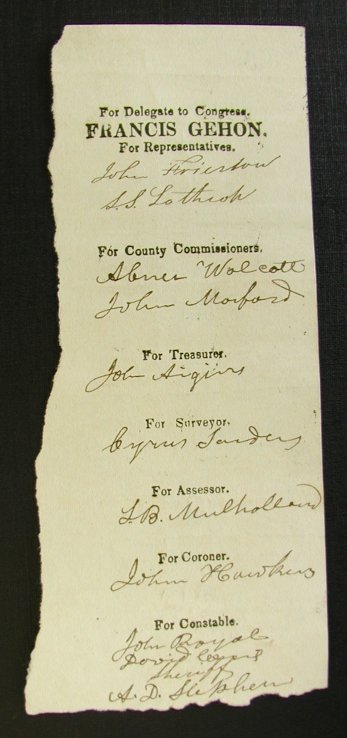 For Delegate to Congress.
FRANCIS GEHON.
For Representatives.
John Frierson
S.S. Lathrop
For County Commissioners.
Abner Wolcott
John Morford
For Treasurer.
John
For Surveyor.
Cyrus Sanders
For Assessor.
S.B. Mulholland
For Coroner.
John Hawkins
For Constable.
John Royal
David
Sheriff
A. D. Stephen